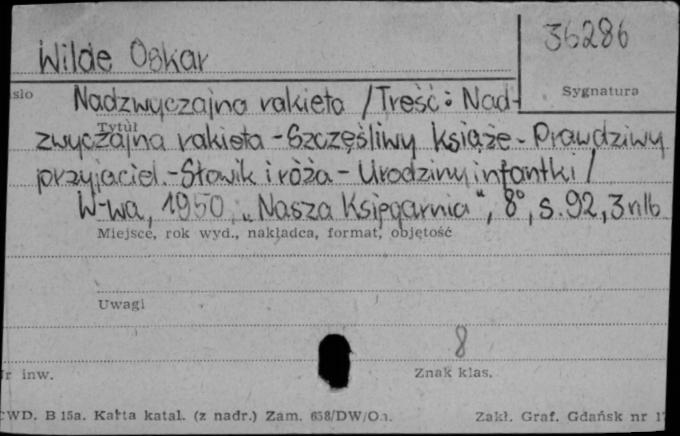 36286
Wilde Oskar
Sygnatura
sło
Nadzwyczajna rakieta / Treść: Nad-
Tytuł
zwyczajna rakieta - Szczęśliwy Książe - Prawdziwy
przyjaciel. - Słowik i róża - Urodziny infantki /
W-wa, 1950, "Nasza Księgarnia", 8°, s. 92, 3 nlb
Miejsce, rok wyd., nakładca, format, objętość
Uwagi
8
r inw.
Znak klas.
CWD. B 15a. Karta katal. (z nadr.) Zam. 658/DW/On.
Zakł. Graf. Gdańsk nr 1